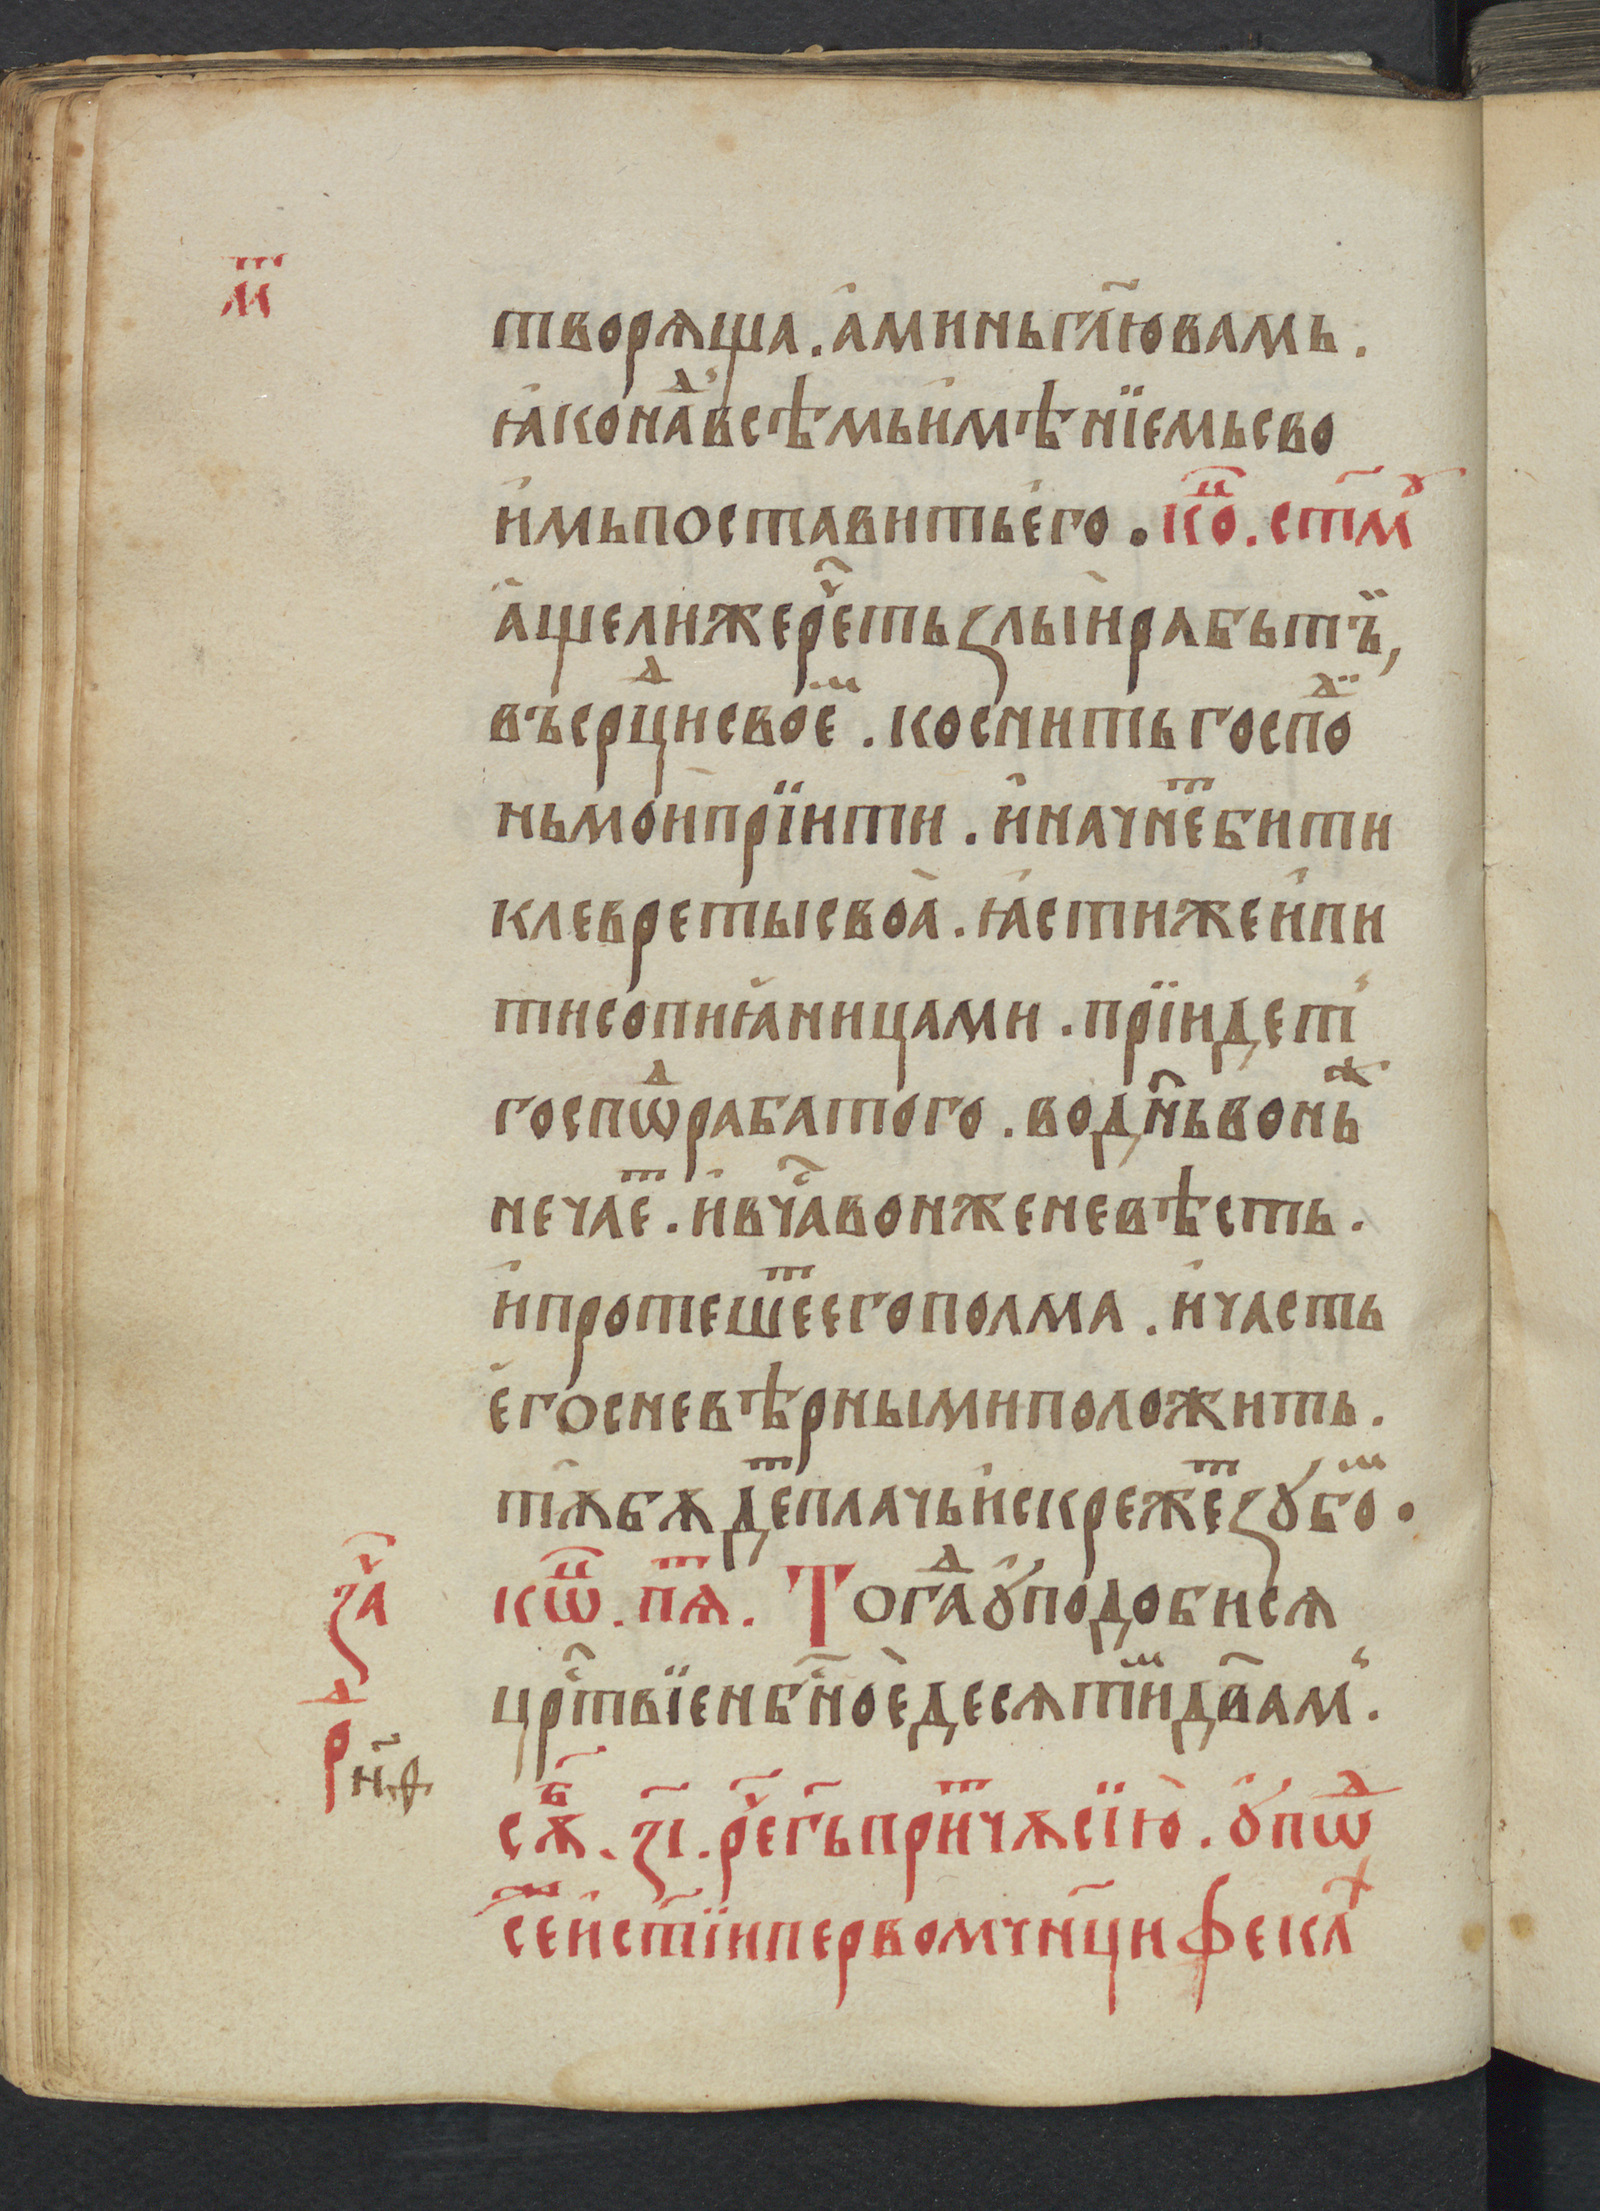 м҃ⷮ
творѧща . аминь гл҃ю вамь .
ꙗко наⷣ всѣмь имѣнїемь сво
имь поставить его . кⷪ҇ⷰ . ст҃мꙋ
аще ли же реⷱ҇ть ꙁлыи рабь тъи ,
въ срⷣци своеⷨ . коснить госпоⷣ
нь мои прїити . и начнеⷮ бити
клевреты своа . ꙗсти же и пи
ти со пиꙗницами . прїидет
госпѡⷣ раба того . во дн҃ь вонь ⷤ
не чаеⷮ . и в чаⷭ҇ вонже не вѣсть .
и протешеⷮ его полма . и часть
его с невѣрными положить .
тѫ бѫдеⷮ плачь и скрежеⷮ ꙁꙋбоⷨ .
ꙁаⷱ҇ кѡⷰ҇ . пѧⷮ . Тогаⷣ ᲂуподобисѧ
црⷭ҇твїе нбⷭ҇ное десѧтиⷨ дв҃ам .
рⷣ
н҃ . ѳ .
сꙋⷠ҇ . ꙁ҃і . реⷱ҇ гь притⷱ҇ѫ сїю . ᲂу пѡⷣ
сеⷨ и ст҃їи первомчн҃ци фекⷧ